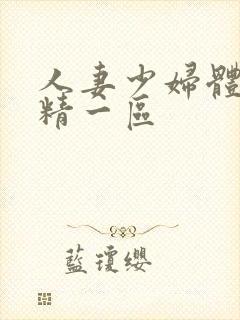 人妻少婦體
精一區
藍瓊纓